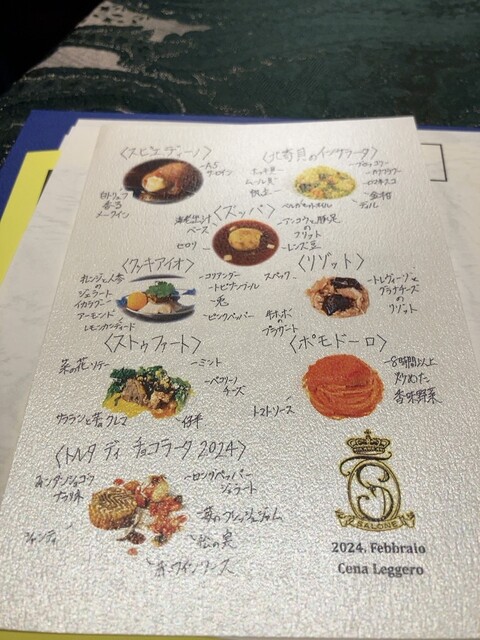 〈スピエディーノ〉
A5
サーロイン
白トリュフ
香る
メークイン
〈北寄貝のインサラータ〉
ホッキ貝
ムール貝
帆立
ブロッコリー
カリフラワー
ロマネスコ
金柑
ディル
ベルガモットオイル
〈ズッパ〉
海老出汁
ベース
セロリ
アンコウと豚足
の
クリット
レンズ豆
〈クッキアイオ〉
オレンジと人参
の
ジェラート
イカラグー
アーモンド
レモンカンディード
コリアンダー
トピナンブール
ピンクペッパー
〈リゾット〉
スペック
トレヴィーゾと
グラナチーズ
の
リゾット
牛ホホ
の
ブラザート
〈ストゥファート〉
菜の花ソテー
ミント
ペコリーノ
チーズ
サフランと卵クレマ
仔羊
〈ポモドーロ〉
8時間以上
炒めた
香味野菜
トマトソース
〈トルタ ディ チョコラータ 2024〉
フォンダンショコラ
ロングペッパー
ジェラート
苺のフレッシュジャム
松の実
赤ワインソース
シャンティ
SALONE
2024. Febbraio
Cena Leggero